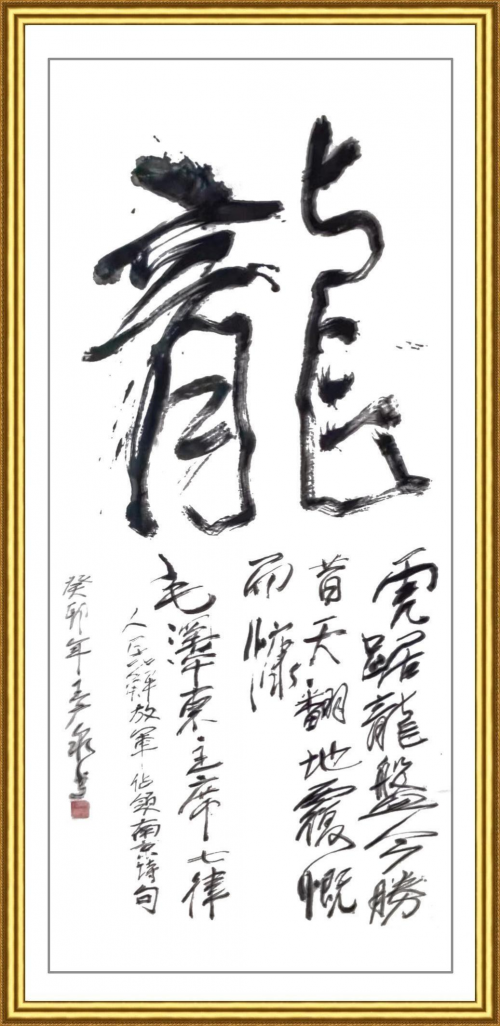 龍
虎踞龍盤今勝
昔天翻地覆慨
而慷
毛澤東主席七律
人民解放軍佔領南京詩句
癸卯年